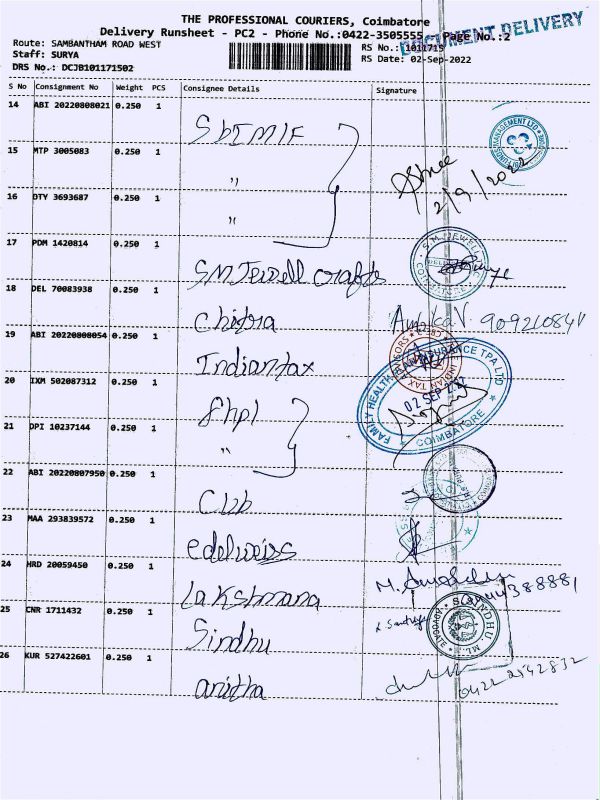 THE PROFESSIONAL COURIERS, Coimbatore
Delivery Runsheet - PC2 - Phone No.:0422-3505555 Page No.:2
DOCUMENT DELIVERY
Route: SAMBANTHAM ROAD WEST RS No.: 1011715
Staff: SURYA RS Date: 02-Sep-2022
DRS No.: DCJB101171502
S No Consignment No Weight PCS Consignee Details Signature
14 ABI 20220808021 0.250 1 SbIMIF
15 MTP 3005083 0.250 1 "
2/9/2022
16 DTY 3693687 0.250 1 "
17 PDM 1420814 0.250 1 SM Jewell crafts
18 DEL 70083938 0.250 1 Chitra
19 ABI 20220808054 0.250 1 Indiantax
20 IXM 502087312 0.250 1 fhpl
FAMILY HEALTH PLAN INSURANCE TPA LTD
COIMBATORE
21 DPI 10237144 0.250 1 "
22 ABI 20220807950 0.250 1 CUb
23 MAA 293839572 0.250 1 edelweiss
24 HRD 20059450 0.250 1 Lakshmana
25 CNR 1711432 0.250 1 Sindhu
26 KUR 527422601 0.250 1 anitha
0422 2542832